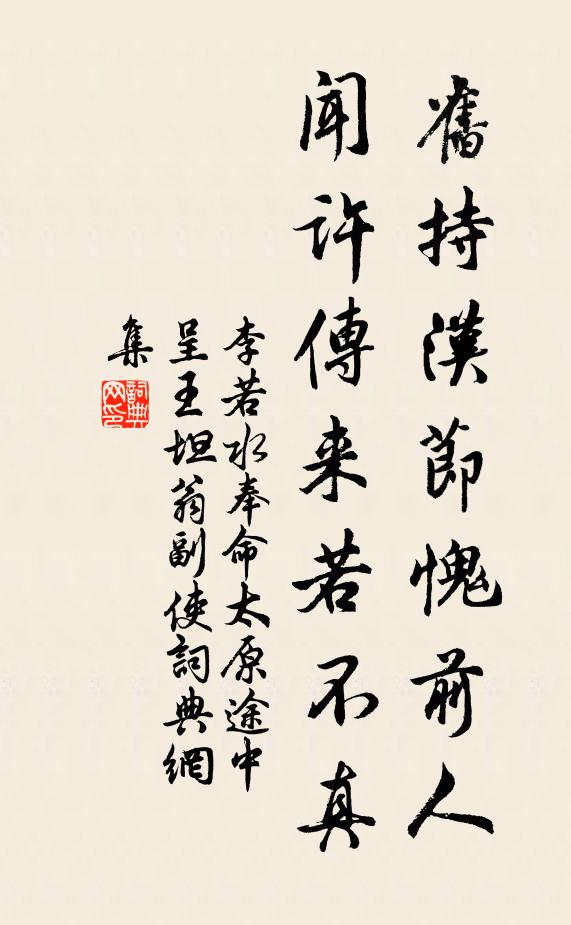 舊持漢節愧前人
聞許傳来若不真
李若水奉命太原途中
呈王坦翁副使詞典網
集
詞典
网印